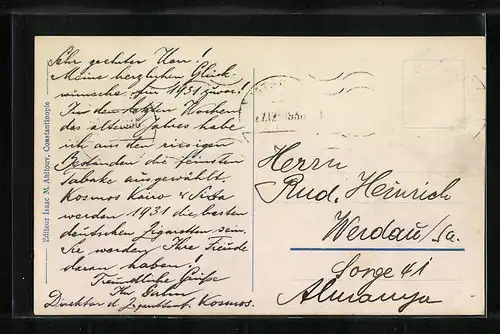 Sehr geehrter Herr!
Meine herzlichen Glück-
wünsche für 1931 zuvor!
In den letzten Wochen
des alten Jahres habe
ich aus den riesigen
Beständen die feinsten
Tabake ausgewählt.
Kosmos Kairo &
werden 1931 die besten
deutschen Zigaretten sein.
Sie werden Ihre Freude
daran haben!
Freundliche Grüße
Ihr
Direktor d. Zigarettenf. Kosmos.
Editeur Isaac M. Ahitouv, Constantinople
Herrn
Rud. Heinrich
Werdau/Sa.
Sorge 41
Almanya